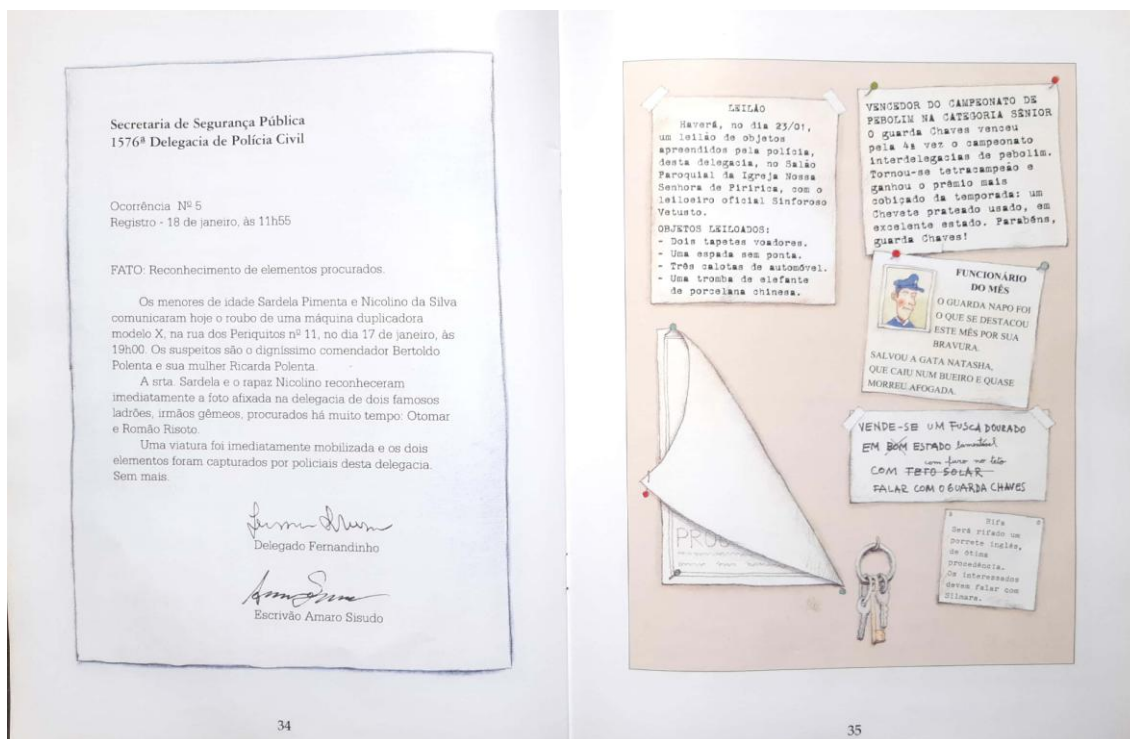 Secretaria de Segurança Pública
1576ª Delegacia de Polícia Civil
Ocorrência Nº 5
Registro - 18 de janeiro, às 11h55
FATO: Reconhecimento de elementos procurados.
Os menores de idade Sardela Pimenta e Nicolino da Silva
comunicaram hoje o roubo de uma máquina duplicadora
modelo X, na rua dos Periquitos nº 11, no dia 17 de janeiro, às
19h00. Os suspeitos são o digníssimo comendador Bertoldo
Polenta e sua mulher Ricarda Polenta.
A srta. Sardela e o rapaz Nicolino reconheceram
imediatamente a foto afixada na delegacia de dois famosos
ladrões, irmãos gêmeos, procurados há muito tempo: Otomar
e Romão Risoto.
Uma viatura foi imediatamente mobilizada e os dois
elementos foram capturados por policiais desta delegacia.
Sem mais.
Delegado Fernandinho
Escrivão Amaro Sisudo
34
LEILÃO
Haverá, no dia 23/01,
um leilão de objetos
apreendidos pela polícia,
desta delegacia, no Salão
Paroquial da Igreja Nossa
Senhora de Piririca, com o
leiloeiro oficial Sinforoso
Vetusto.
OBJETOS LEILOADOS:
- Dois tapetes voadores.
- Uma espada sem ponta.
- Três calotas de automóvel.
- Uma tromba de elefante
de porcelana chinesa.
VENCEDOR DO CAMPEONATO DE
PEBOLIM NA CATEGORIA SÊNIOR
O guarda Chaves venceu
pela 4ª vez o campeonato
interdelegacias de pebolim.
Tornou-se tetracampeão e
ganhou o prêmio mais
cobiçado da temporada: um
Chevete prateado usado, em
excelente estado. Parabéns,
guarda Chaves!
FUNCIONÁRIO
DO MÊS
O GUARDA NAPO FOI
O QUE SE DESTACOU
ESTE MÊS POR SUA
BRAVURA.
SALVOU A GATA NATASHA,
QUE CAIU NUM BUEIRO E QUASE
MORREU AFOGADA.
VENDE-SE UM FUSCA DOURADO
EM BOM ESTADO lamentável
com furo no teto
COM TETO SOLAR
FALAR COM O GUARDA CHAVES
Rifa
Será rifado um
porrete inglês,
de ótima
procedência.
Os interessados
devem falar com
Silmara.
PROC
35